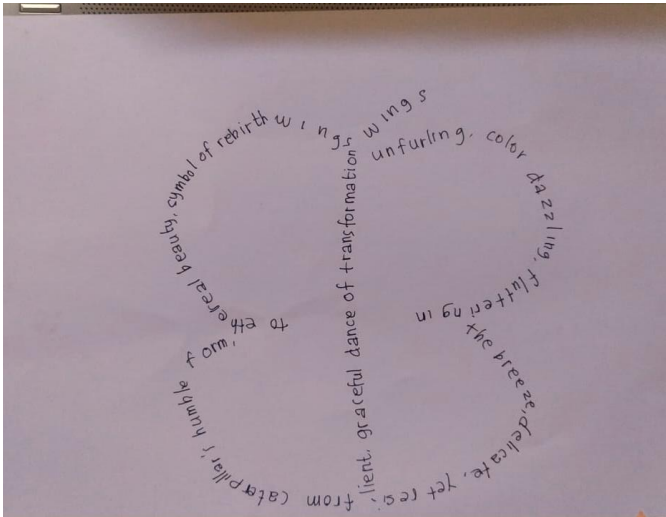 wings
wings
unfurling, color dazzling, fluttering in
the breeze, delicate, yet resi
lient, graceful dance of transformation
from caterpillar's humble form,
to ethereal beauty, symbol of rebirth